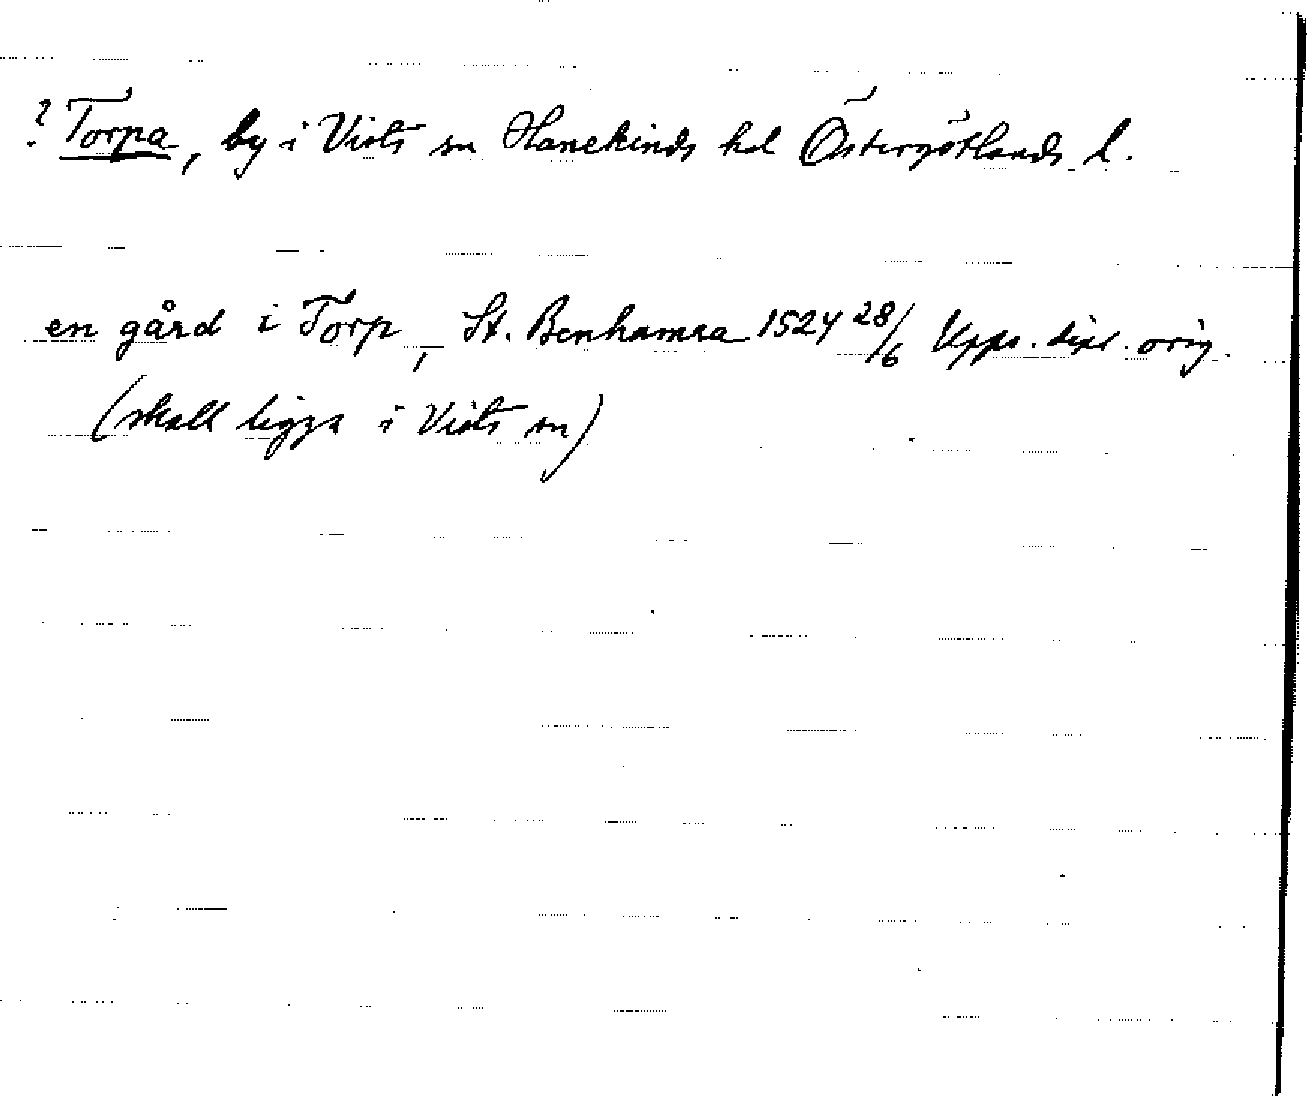 ? Torpa, by i Vists sn Hanekinds hd Östergötlands l.
en gård i Torp, St. Benhamra 1524 28/6 Upps. dipl. orig.
(skall ligga i Vists sn)